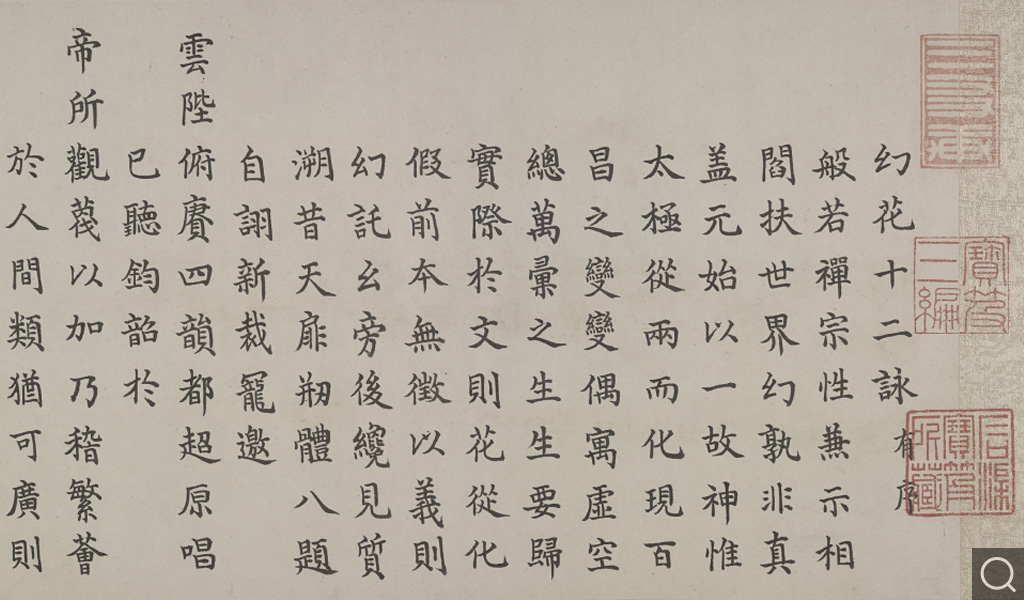 幻花十二詠 有序
般若禪宗性兼示相
閻扶世界幻孰非真
盖元始以一故神惟
太極從兩而化現百
昌之變變偶寓虛空
總萬彙之生生要歸
實際於文則花從化
假前本無徵以義則
幻託么旁後纔見質
溯昔天扉刱體八題
自詡新裁寵邀
雲陛俯賡四韻都超原唱
已聽鈞韶於
帝所觀蕿以加乃稽繁薈
於人間類猶可廣則
寶笈
三編